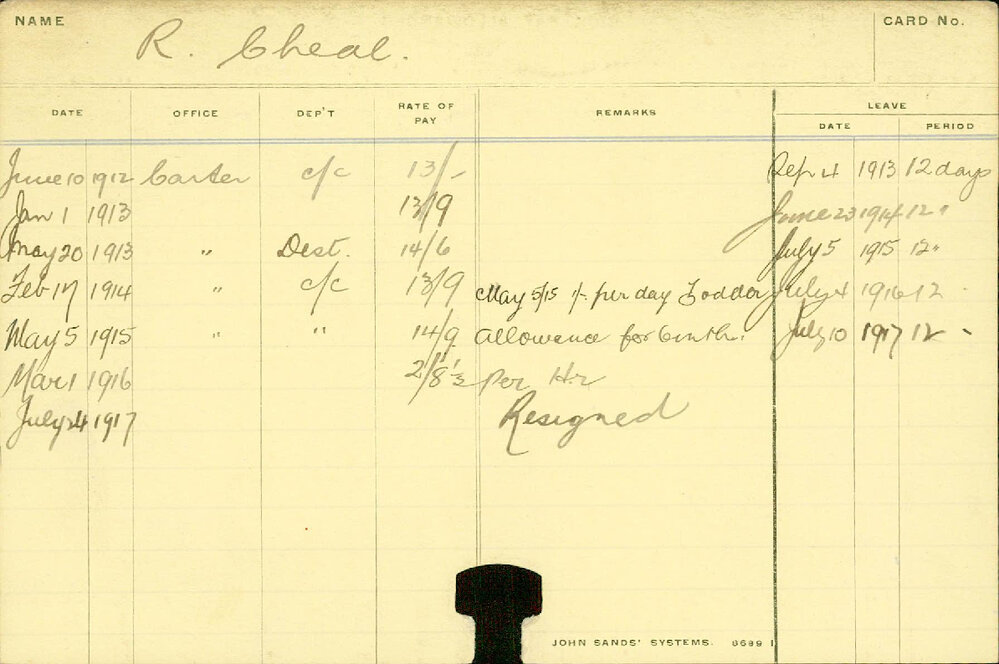 NAME R. Cheal. CARD No.
DATE OFFICE DEP'T RATE OF PAY REMARKS LEAVE
DATE PERIOD
June 10 1912 Carter c/c 13/- Sep 4 1913 12 days
Jan 1 1913 13/9 June 23 1914 12 "
May 20 1913 " Dest. 14/6 July 5 1915 12 "
Feb 17 1914 " c/c 13/9 May 5/15 1/- per day Fodder July 4 1916 12 "
May 5 1915 " " 14/9 Allowance for 6 mths. July 10 1917 12 "
Mar 1 1916 2/8 1/2 per Hr
July 24 1917 Resigned
JOHN SANDS' SYSTEMS. 8689